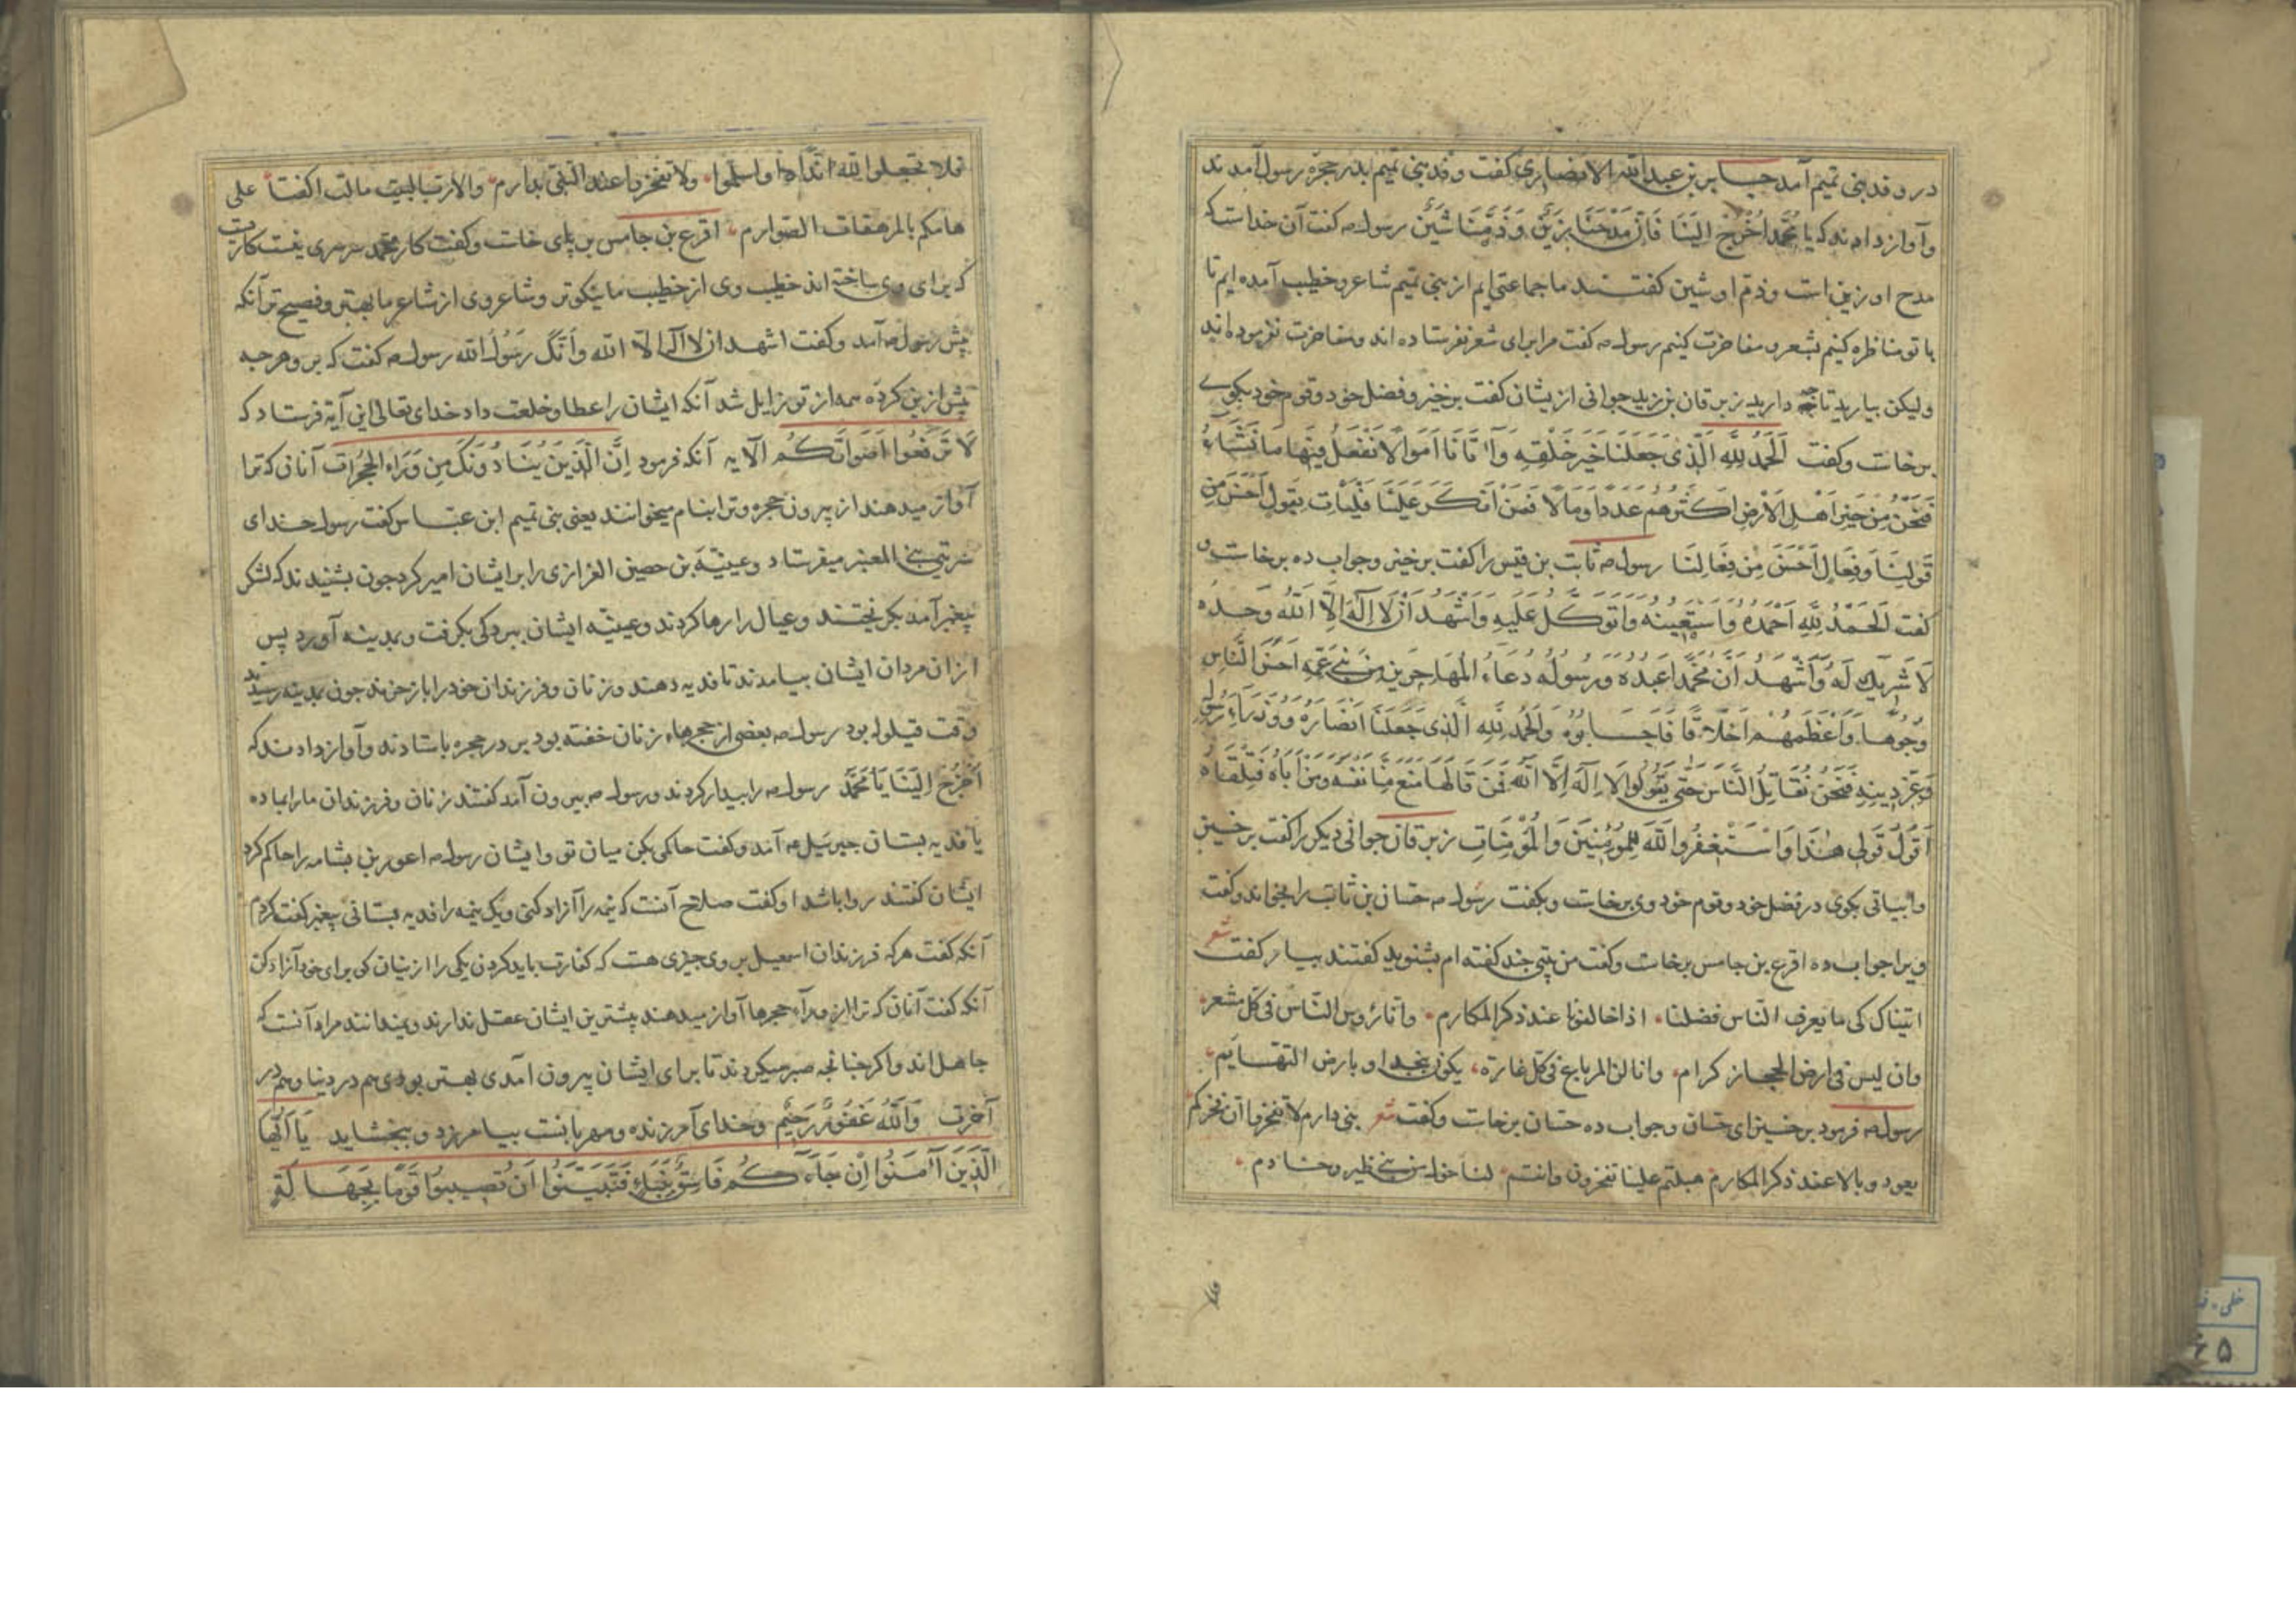 در وفد بنی تمیم آمد جابر بن عبدالله الانصاری کفت وفد بنی تمیم بدر حجرهٔ رسول آمدند
وآواز دادند که یا مُحَّمد اُخْرُج اِلَینَا فَاِنَّ مَدْحَنَا زَیْنٌ وَ ذَمَّنَا شَیْنٌ رسول صه کفت آن خداست که
مدح او زین است وذم او شین کفتند ما جماعتی ایم از بنی تمیم شاعر وخطیب آمده ایم تا
با تو مناظره کنیم بشعر ومفاخرت کنیم رسول صه کفت مرا برای شعر نفرستاده اند ومفاخرت نفرموده اند
ولیکن بیارید تا چه دارید زبرقان بن زید جوانی از یشان کفت برخیز وفضل خود وقوم خود بکوے
برخاست وکفت اَلْحَمْدُ لِلَّهِ الَّذِی جَعَلَنَا خَیْرَ خَلْقِهِ وَآتَانَا اَمْوَالًا نَفْعَلُ فِیهَا مَا نَشَاءُ
فَنَحْنُ مِنْ خَیْرِ اَهْلِ الْاَرْضِ اَکْثَرُهُم عَدَداً وَمَالًا فَمَنْ اَنْکَرَ عَلَیْنَا فَلْیَاتِ بِقَوْلٍ اَحْسَنَ مِن
قَوْلِنَا وَفِعَالٍ اَحْسَنَ مِن فِعَالِنَا رسول صه ثابت بن قیس را کفت برخیز وجواب ده برخاست و
کفت اَلْحَمْدُ لِلَّهِ اَحْمَدُهُ وَاَسْتَعِینُهُ وَاَتَوَکَّلُ عَلَیْهِ وَاَشْهَدُ اَنْ لَا اِلَهَ اِلَّا اللَّهُ وَحْدَهُ
لَا شَرِیكَ لَهُ وَاَشْهَدُ اَنَّ مُحَمَّداً عَبْدُهُ وَرَسُولُهُ دَعَاءَ الْمُهَاجِرِینَ مِنْ بَنِے عَمِّهِ اَحْسَنَ النَّاسِ
وُجُوهًا وَاَعْظَمَهُمْ اَخْلَاقًا فَاَجَابُوهُ وَالْحَمْدُ لِلَّهِ الَّذِی جَعَلَنَا اَنْصَارَهُ وَوُزَرَاءَ رَسُولِهِ
وَعِزَّ دِینِهِ فَنَحْنُ نُقَاتِلُ النَّاسَ حَتَّى یَقُولُوا لَا اِلَهَ اِلَّا اللَّهُ فَمَن قَالَهَا مَنَعَ مِنَّا نَفْسَهُ وَمَنْ اَبَاهُ قَتَلْنَاهُ
اَقُولُ قَوْلِی هَذَا وَاَسْتَغْفِرُ اللَّهَ لِلْمُؤمِنِینَ وَالْمُؤْمِنَاتِ زبرقان جوانی دیکر را کفت برخیز
وابیاتی بکوی در فضل خود وقوم خود وی برخاست وبکفت رسول صه حسان بن ثابت را بخواند وکفت
ویرا جواب ده اقرع بن حابس برخاست وکفت من بیتی چند کفته ام بشنوید کفتند بیار کفت شعر
اتیناک کی ما یعرف النّاس فضلنا اذا خالفونا عند ذکر المکارم وانا رؤس النّاس فی کلّ مشعر
وان لیس فی ارض الحجاز کرام وانا لنا المرباع فی کلّ غارة یکون بنجد او بارض التهایم
رسول صه فرمود برخیز ای حسّان وجواب ده حسّان برخاست وکفت شعر بنی دارم لا تفخروا ان فخرکم
یعود وبالا عند ذکر المکارم هبلتم علینا تفخرون وانتم لنا خول من بنے ظیر وخادم
فلا تجعلوا لله اندادا واسلموا ولا تفخروا عند النّبی بدارم والا ورب البیت مالت اکفّنا علی
هامکم بالمرهفات الصّوارم اقرع بن حابس بر پای خاست وکفت کار محمّد سرسری نیست کاریست
که برای وی ساخته اند خطیب وی از خطیب ما نیکوتر وشاعر وی از شاعر ما بهتر وفصیح تر آنکه
پیش رسول صه آمد وکفت اشهد ان لا اله الا الله وَاَنَّکَ رَسُولُ الله رسول صه کفت که برو هرچه
پیش ازین کردهٔ همه از تو زایل شد آنکه ایشان را عطا وخلعت داد خدای تعالی این آیة فرستاد که
لَا تَرْفَعُوا اَصْوَاتَکُم الآیه آنکه فرمود اِنَّ الَّذِینَ یُنَادُونَکَ مِن وَرَاءِ الْحُجُرَاتِ آنان که ترا
آواز میدهند از بیرون حجره وترا بنام میخوانند یعنی بنی تمیم ابن عبّاس کفت رسول خدای
سریّتی ببنے العنبر میفرستاد وعیینة بن حصین الفزاری را بر ایشان امیر کرد چون بشنیدند که لشکر
پیغمبر آمد بکریختند وعیال را رها کردند وعیینه ایشان ببردکی بکرفت وبمدینه آورد پس
ازان مردان ایشان بیامدند تا فدیه دهند وزنان وفرزندان خود را باز خرند چون بمدینه رسیدند
وقت قیلوله بود رسول صه بعضی از حجرهاء زنان خفته بود بر در حجره باستادند وآواز دادند که
اُخْرُجْ اِلَیْنَا یَا مُحَمَّد رسول صه را بیدار کردند ورسول صه بیرون آمد کفتند زنان وفرزندان ما را بما ده
یا فدیه بستان جبرئیل عه آمد وکفت حاکمی بکن میان تو وایشان رسول صه اعور بن بشامه را حاکم کرد
ایشان کفتند روا باشد او کفت صلاح آنست که نیمه را آزاد کنی ویک نیمه را فدیه بستانی پیغمبر کفت کردم
آنکه کفت هر که فرزندان اسمعیل بر وی چیزی هست که کفارت باید کردن یکی را از ینان کی برای خود آزاد کن
آنکه کفت آنان که ترا از وراء حجرها آواز میدهند بیشترین ایشان عقل ندارند ونمیدانند مراد آنست که
جاهل اند واکر چنانچه صبر میکردند تا برای ایشان بیرون آمدی بهتر بودی هم در دنیا وهم در
آخرت وَاللَّهُ غَفُورٌ رَحِیمٌ وخدای آمرزنده ومهربانست بیامرزد وببخشاید یَا اَیُّهَا
الَّذِینَ آمَنُوا اِنْ جَاءَکُم فَاسِقٌ بِنَبَاءٍ فَتَبَیَّنُوا اَن تُصِیبُوا قَوْمًا بِجَهَالَةٍ